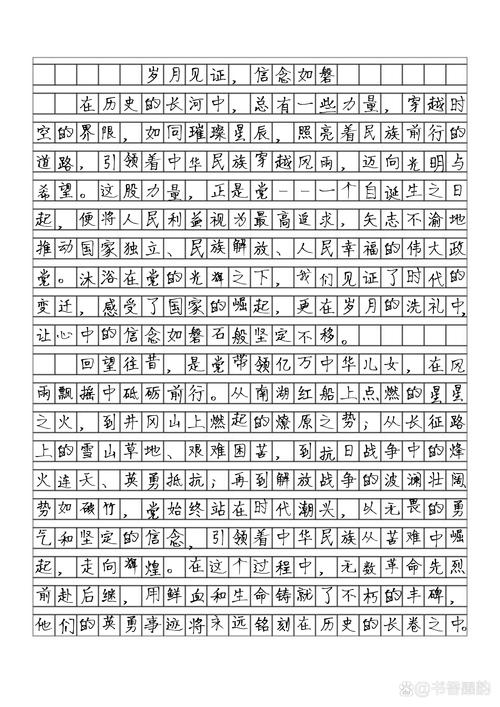 岁月见证，信念如磐
在历史的长河中，总有一些力量，穿越时
空的界限，如同璀璨星辰，照亮着民族前行的
道路，引领着中华民族穿越风雨，迈向光明与
希望。这股力量，正是党——一个自诞生之日
起，便将人民利益视为最高追求，矢志不渝地
推动国家独立、民族解放、人民幸福的伟大政
党。沐浴在党的光辉之下，我们见证了时代的
变迁，感受了国家的崛起，更在岁月的洗礼中，
让心中的信念如磐石般坚定不移。
回望往昔，是党带领亿万中华儿女，在风
雨飘摇中砥砺前行。从南湖红船上点燃的星星
之火，到井冈山上燃起的燎原之势；从长征路
上的雪山草地、艰难困苦，到抗日战争中的烽
火连天、英勇抵抗；再到解放战争的波澜壮阔
势如破竹，党始终站在时代潮兴，以无畏的勇
气和坚定的信念，引领着中华民族从苦难中崛
起，走向辉煌。在这个过程中，无数革命先烈
前赴后继，用鲜血和生命铸就了不朽的丰碑，
他们的英勇事迹将永远铭刻在历史的长卷之中